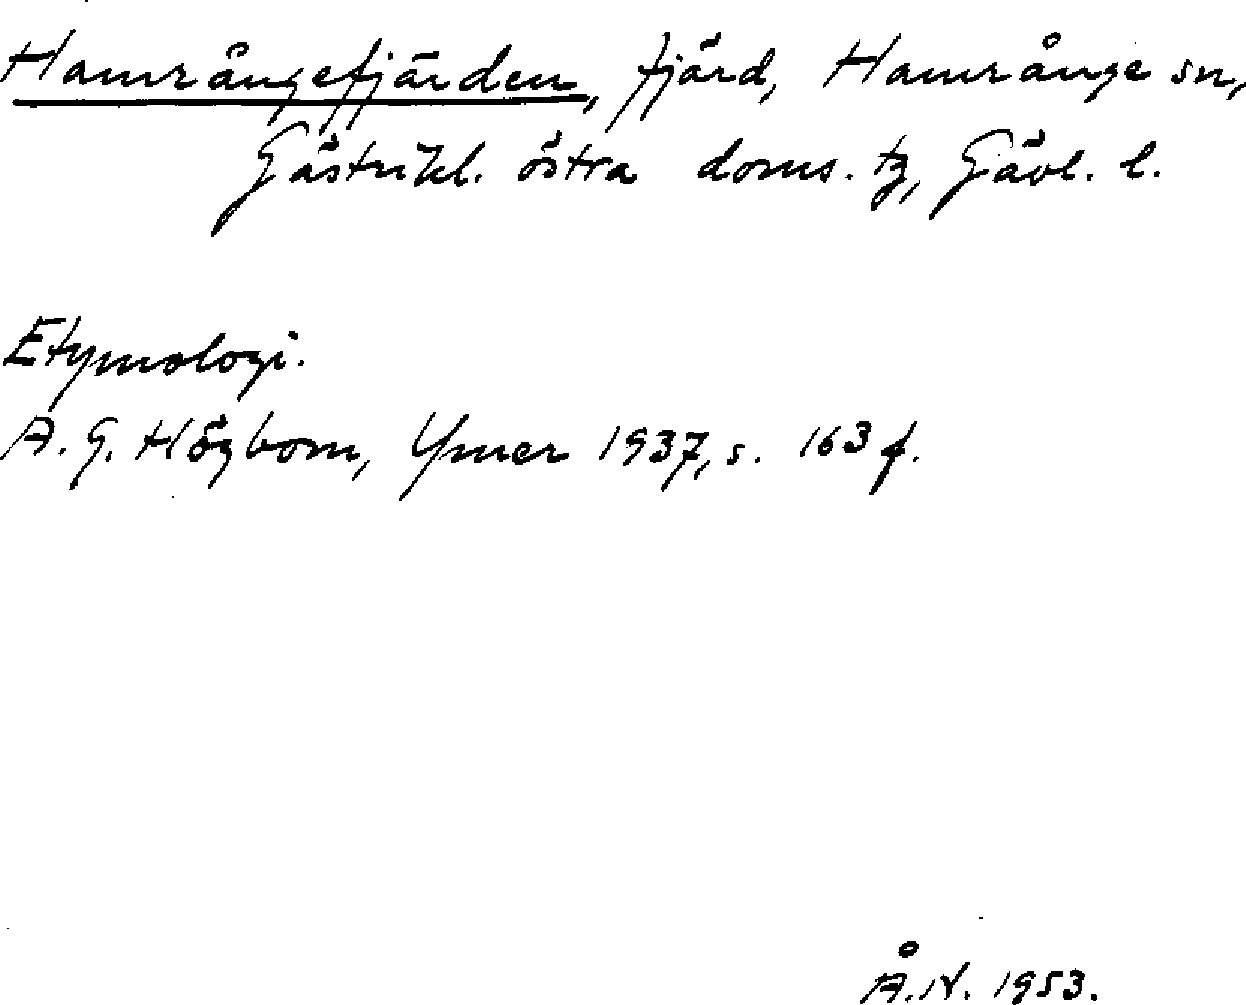 Hamrångefjärden, fjärd, Hamrånge sn,
Gästrikl. östra doms. tg, Gävl. l.
Etymologi.
A. G. Högbom, Ymer 1937, s. 163 f.
Å. N. 1953.